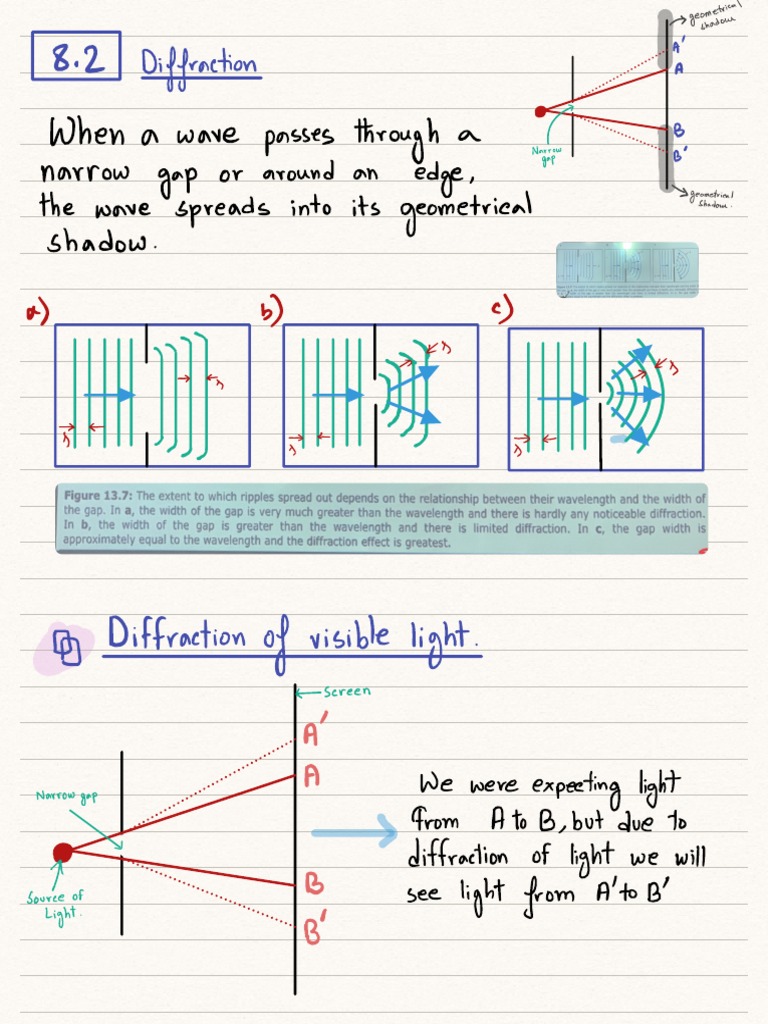 8.2 Diffraction
geometrical
shadow
A'
A
Narrow
gap
B
B'
geometrical
shadow.
When a wave passes through a
narrow gap or around an edge,
the wave spreads into its geometrical
shadow.
a) b) c)
λ λ λ λ λ λ
Figure 13.7: The extent to which ripples spread out depends on the relationship between their wavelength and the width of
the gap. In a, the width of the gap is very much greater than the wavelength and there is hardly any noticeable diffraction.
In b, the width of the gap is greater than the wavelength and there is limited diffraction. In c, the gap width is
approximately equal to the wavelength and the diffraction effect is greatest.
Diffraction of visible light.
Screen
A'
A
Narrow gap
B
B'
Source of
Light.
We were expecting light
from A to B, but due to
diffraction of light we will
see light from A' to B'